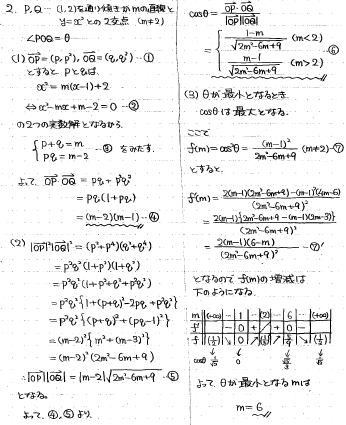 2. P, Q … (1, 2)を通り傾きがmの直線と
y=x²との2交点 (m≠2)
∠POQ=θ
(1) OP→=(p, p²), OQ→=(q, q²) …①
とすると pとqは、
x²=m(x-1)+2
⇔ x²-mx+m-2=0 …②
の2つの実数解となるから
{ p+q=m
pq=m-2 …③ をみたす。
よって OP→·OQ→ = pq+p²q²
= pq(1+pq)
= (m-2)(m-1) …④
(2) |OP→|²|OQ→|² = (p²+p⁴)(q²+q⁴)
= p²q²(1+p²)(1+q²)
= p²q²(1+p²+q²+p²q²)
= p²q²{1+(p+q)²-2pq+p²q²}
= p²q²{(p+q)²+(pq-1)²}
= (m-2)²{m²+(m-3)²}
= (m-2)²(2m²-6m+9)
∴ |OP→||OQ→| = |m-2|√(2m²-6m+9) …⑤
となる。
よって、④, ⑤より
cosθ = OP→·OQ→ / |OP→||OQ→|
= { (1-m)/√(2m²-6m+9) (m<2)
(m-1)/√(2m²-6m+9) (m>2) …⑥
(3) θが最小となるとき
cosθは最大となる。
ここで
f(m)=cos²θ= (m-1)²/(2m²-6m+9) (m≠2) …⑦
とすると、
f'(m)= {2(m-1)(2m²-6m+9)-(m-1)²(4m-6)}/(2m²-6m+9)²
= 2(m-1){2m²-6m+9-(m-1)(2m-3)}/(2m²-6m+9)²
= 2(m-1)(6-m)/(2m²-6m+9)² …⑦'
となるので f(m)の増減は
下のようになる。
m (-∞) … 1 … (2) … 6 … (+∞)
f' - 0 + / + 0 -
f (1/2) ↘ 0 ↗ ↗ ↘ (1/2)
cosθ 0
よって θが最小となるmは
m=6